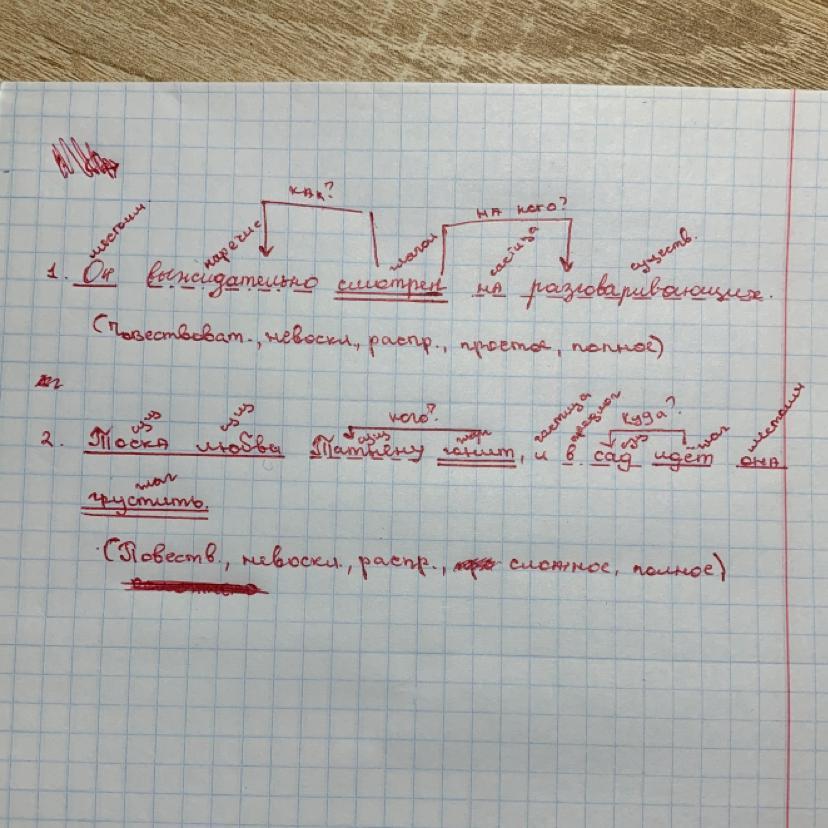 как?
на кого?
местоим наречие глагол частица существ.
1. Он выжидательно смотрел на разговаривающих.
(Повествоват., невоскл., распр., простое, полное)
кого? частица предлог куда? местоим
2. Тоска любви Татьяну гонит, и в сад идёт она
глаг
грустить.
(Повеств., невоскл., распр., сложное, полное)